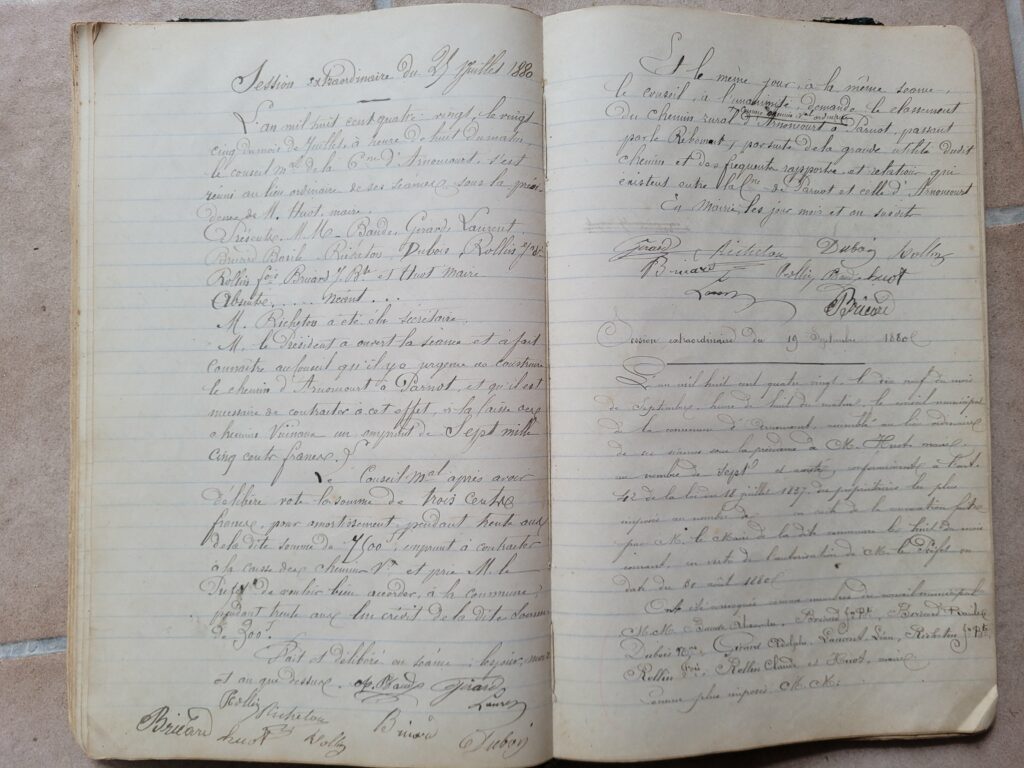 Session extraordinaire du 25 Juillet 1880
L'an mil huit cent quatre-vingt, le vingt
cinq du mois de Juillet, à heure de huit du matin
le conseil mal de la Cne d'Arnoncourt, s'est
réuni au lieu ordinaire de ses séances, sous la prési
dence de M. Huot maire.
Présents, M.M. Baude, Girard, Laurent,
Briard Basile Richeton Dubois Rollin
Rollin fois Briard J. Bte et Huot maire
Absents . . . néant . . .
M. Richeton a été élu secrétaire.
M. le Président a ouvert la séance et a fait
connaître au Conseil qu'il y a urgence de construire
le chemin d'Arnoncourt à Parnot, et qu'il est
nécessaire de contracter à cet effet, à la caisse des
chemins Vicinaux un emprunt de Sept mille
cinq cents francs.
Le Conseil mal après avoir
délibéré vote la somme de trois cents
francs, pour amortissement, pendant trente ans
de la dite somme de 7500f, emprunt à contracter
à la caisse des chemins Vx et prie M. le
Préfet de vouloir bien accorder, à la commune,
pendant trente ans un crédit de la dite somme
de 300f.
Fait et délibéré en séance, les jour, mois
et an que dessus. Baude Girard
Rollin Laurent
Briard Richeton Binard
huot Rollin Dubois
Et le même jour, à la même séance,
le conseil, à l'unanimité, demande le classement
comme chemin val ordinaire
du chemin rural d'Arnoncourt à Parnot, passant
par le Rebomont, par suite de la grande utilité du dit
chemin et des fréquents rapports et relations qui
existent entre la Cne de Parnot et celle d'Arnoncourt
En Mairie, les jour, mois et an susdit
Girard Richeton Dubois Rollin
Binard Rollin Baude huot
Laurent Briard
Session extraordinaire du 19 Septembre 1880
L'an mil huit cent quatre vingt, le dix neuf du mois
de Septembre, heure de huit du matin, le conseil municipal
de la commune d'Arnoncourt, assemblé au lieu ordinaire
de ses séances sous la présidence de M. Huot maire,
au nombre de sept et assisté, conformément à l'art.
42 de la loi du 18 juillet 1837, des propriétaires les plus
imposés au nombre de en vertu de la convocation faite
par M. le Maire de la dite commune le huit du mois
courant, en vertu de l'autorisation de M. le Préfet en
date du 30 août 1880
Ont été convoqués comme membres du conseil municipal
M.M. Baude Briard J. Bte
Dubois Girard Adolphe, Laurent Léon, Richeton J. Bte
Rollin fois, Rollin Claude, et Huot, maire
Comme plus imposés M.M.